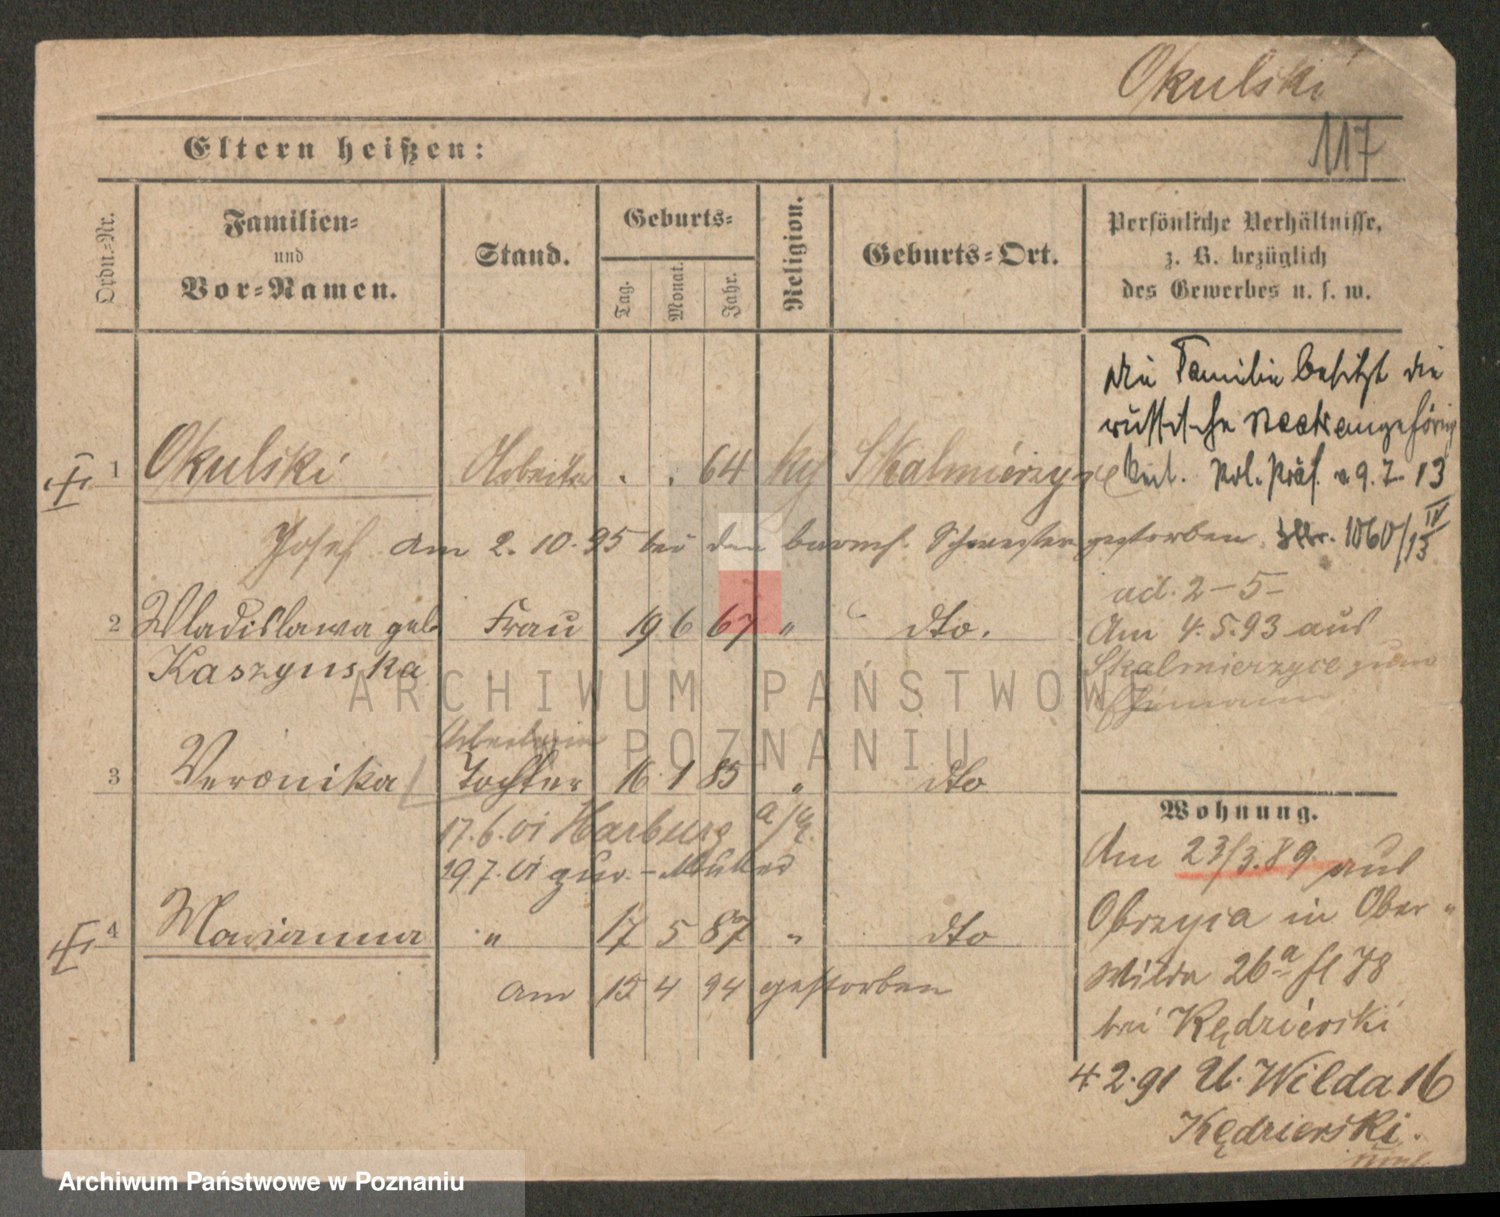 Okulski
117
Eltern heißen:
Ordn.-Nr.
Familien-
und
Vor-Namen.
Stand.
Geburts-
Tag.
Monat.
Jahr.
Religion.
Geburts-Ort.
Persönliche Verhältnisse,
z. B. bezüglich
des Gewerbes u. s. w.
Die Familie besitzt die
russische Staatsangehörig
keit. Pol. Präs. v. 9. 7. 13
1060/13 IV
1 Okulski Arbeiter . . 64 kth Skalmierzyce
Josef am 2. 10. 95 bei den barmh. Schwestern gestorben
ad. 2-5-
2 Wladislawa geb. Frau 19 6 67 " dto.
Kaszynska
Am 4. 5. 93 aus
Skalmierzyce zum
Ehemann
Arbeiterin
3 Veronika Tochter 16 1 85 " dto
17. 6. 01 Harburg a/E.
19 7. 01 zur Mutter
4 Marianna " 17 5 87 " dto
am 15 4 94 gestorben
Wohnung.
Am 23/3. 89. aus
Obrzyca in Ober-
Wilda 26a fl 78
bei Kędzierski
4. 2. 91 U. Wilda 16
Kędzierski.
ARCHIWUM PAŃSTWOWE
W POZNANIU
Archiwum Państwowe w Poznaniu